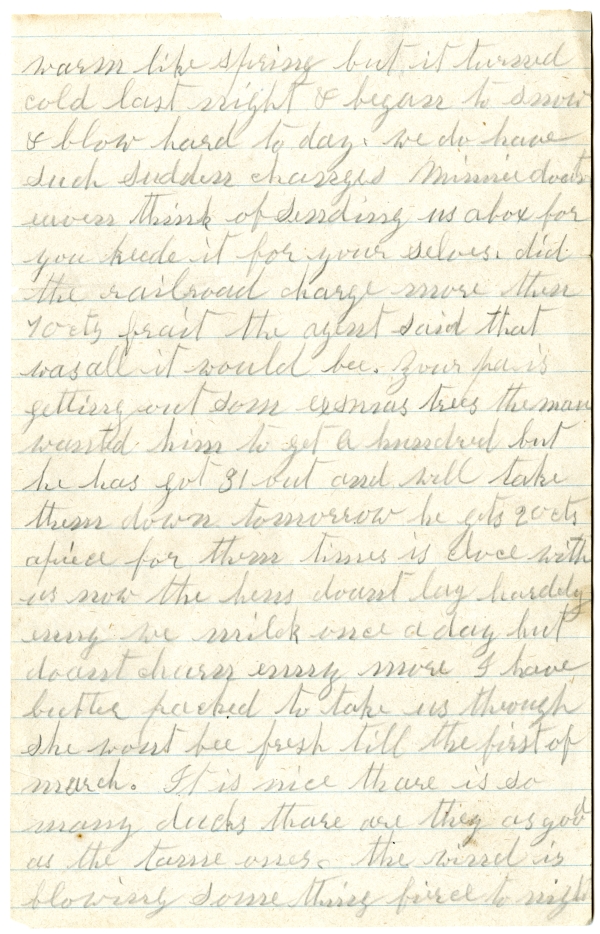 warm like spring but it turned
cold last night & began to snow
& blow hard to day. we do have
such sudden changes Minnie doant
euven think of sending us a box for
you neede it for your selves. did
the railroad charge more then
70 cts frait the agent said that
was all it would bee. Your pa is
getting out som exsmas trees the man
wanted him to get a hundred but
he has got 31 out and will take
them down tomorrow he gets 20 cts
apiece for them times is cloce with
us now the hens doant lay hardely
enny we milck once a day but
doant churn enny more I have
butter packed to take us through
she wont bee fresh till the first of
march. It is nice thare is so
many ducks thare are they as good
as the tame ones. the wind is
blowing some thing fierce to night